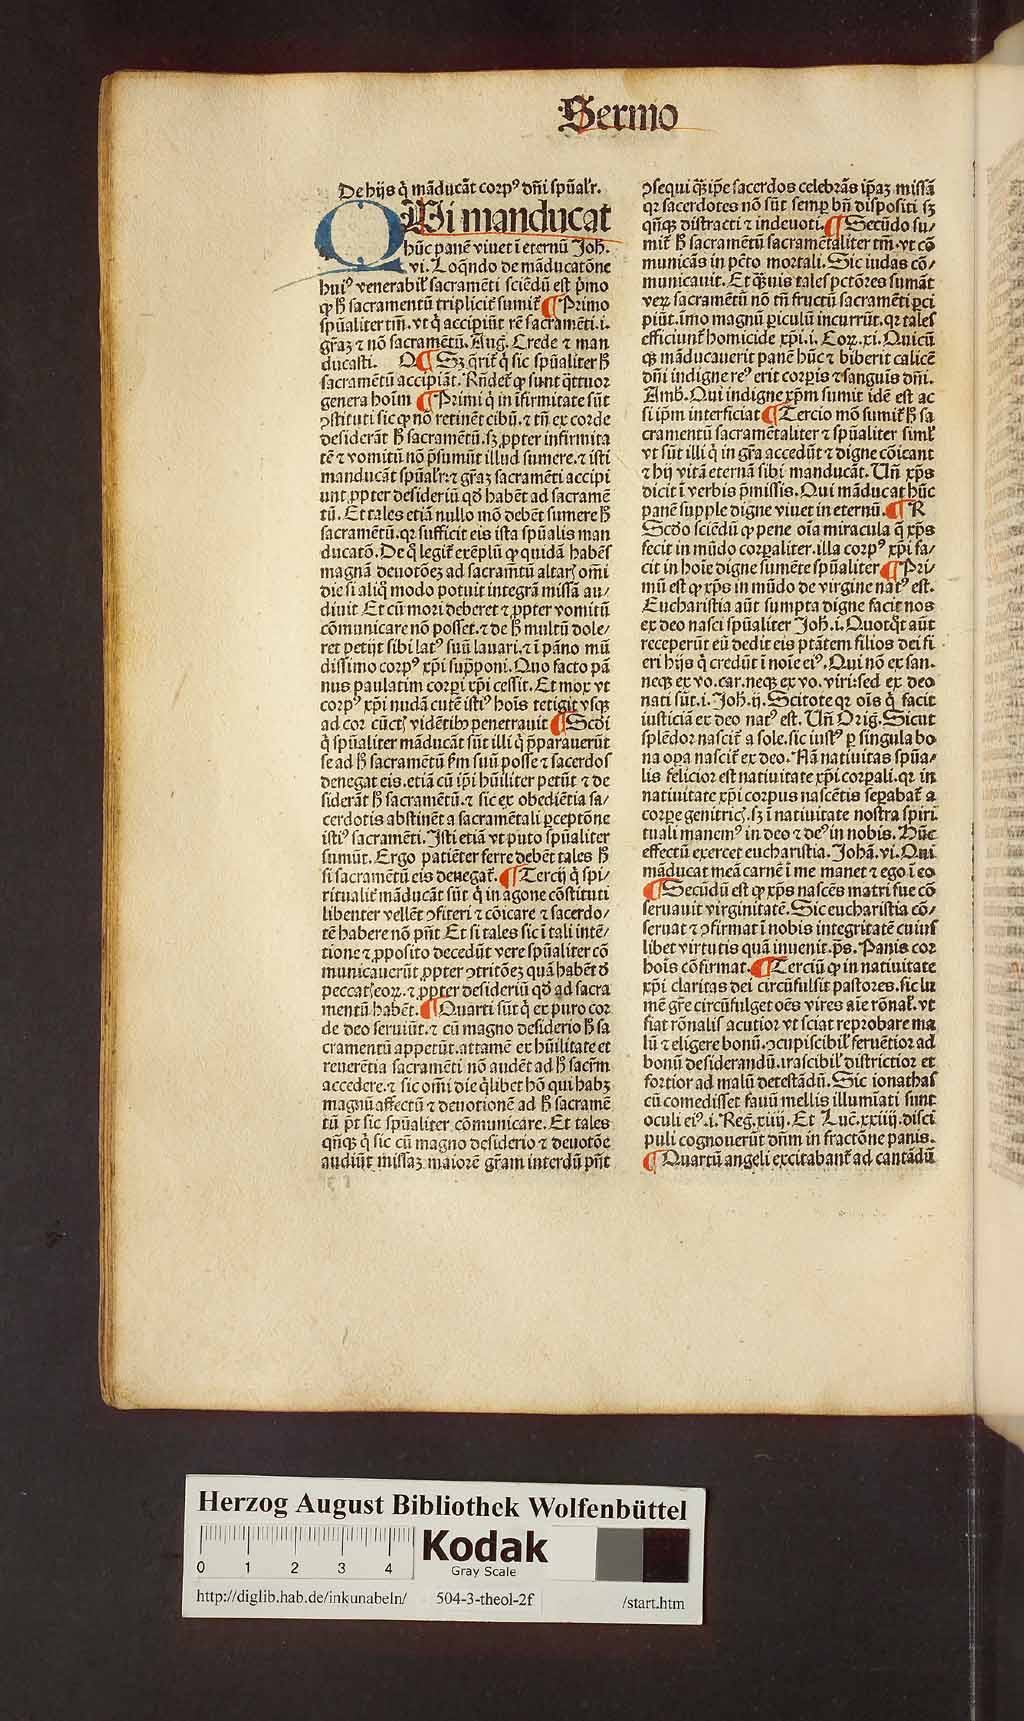 Sermo
De hijs q̇ mãducãt corpꝰ dñi spũalr̃.
QWi manducat
hũc panẽ viuet ĩ eternũ Joh̃.
vi. Loq̃ndo de mãducatõne
huiꝰ venerabil̃ sacramẽti sciẽdũ est p̃mo
ꝙ h̃ sacramentũ triplicit̃ sumit̃ ¶ Primo
spũaliter tm̃. vt q̇ accipiũt rẽ sacramẽti. i.
gr̃aꝫ ⁊ nõ sacramẽtũ. Aug̃. Crede ⁊ man
ducasti. O ¶ Sꝫ q̃rit̃ q̇ sic spũaliter h̃
sacramẽtũ accipiãt. Rñdet̃ ꝙ sunt q̃ttuor
genera hoĩm ¶ Primi q̇ in ĩfirmitate sũt
ꝯstituti sic ꝙ nõ retinẽt cibũ. ⁊ tñ ex corde
desiderãt h̃ sacramẽtũ. sꝫ ꝓpter infirmita
tẽ ⁊ vomitũ nõ p̃sumũt illud sumere. ⁊ isti
manducãt spũalr̃: ⁊ gr̃aꝫ sacramẽti accipi
unt ꝓpter desideriũ qd̃ habẽt ad sacramẽ
tũ. Et tales etiã nullo mõ debẽt sumere h̃
sacramẽtũ. qꝛ sufficit eis ista spũalis man
ducatõ. De q̃ legit̃ exẽplũ ꝙ quidã habẽs
magnã deuotõeꝫ ad sacram̃tũ altarꝭ om̃i
die si aliq̃ modo potuit integrã missã au/
diuit Et cũ mori deberet ⁊ ꝓpter vomitũ
cõmunicare nõ posset. ⁊ de h̃ multũ dole/
ret petijt sibi latꝰ suũ lauari. ⁊ ĩ pãno mũ
dissimo corpꝰ xp̃i sup̃poni. Quo facto pã
nus paulatim corpi xp̃i cessit. Et mox vt
corpꝰ xp̃i nudã cutẽ istiꝰ hoĩs tetigit vsqꝫ
ad cor cũctꝭ vidẽtibꝰ penetrauit ¶ Scd̃i
q̇ spũaliter mãducãt sũt illi q̇ p̃parauerũt
se ad h̃ sacramẽtũ fm̃ suũ posse ⁊ sacerdos
denegat eis. etiã cũ ip̃i hũiliter petũt ⁊ de
siderãt h̃ sacramẽtũ. ⁊ sic ex obediẽtia sa/
cerdotis abstinẽt a sacramẽtali ꝑceptõne
istiꝰ sacramẽti. Isti etiã vt puto spũaliter
sumũt. Ergo patiẽter ferre debẽt tales h̃
si sacramẽtũ eis denegat̃. ¶ Tercij q̇ spi/
ritualit̃ mãducãt sũt q̇ in agone cõstituti
libenter vellẽt ꝯfiteri ⁊ cõicare ⁊ sacerdo/
tẽ habere nõ pñt Et si tales sic ĩ tali intẽ/
tione ⁊ ꝓposito decedũt vere spũaliter cõ
municauerũt ꝓpter ꝯtritõeꝫ quã habẽt d̃
peccatꝭ eoꝝ. ⁊ ꝓpter desideriũ qd̃ ad sacra
mentũ habẽt. ¶ Quarti sũt q̇ ex puro cor
de deo seruiũt. ⁊ cũ magno desiderio h̃ sa
cramentũ appetũt. attamẽ ex hũilitate et
reuerẽtia sacramẽti nõ audẽt ad h̃ sacr̃m
accedere. ⁊ sic om̃i die q̇libet hõ qui habꝫ
magnũ affectũ ⁊ deuotionẽ ad h̃ sacramẽ
tũ p̃t sic spũaliter cõmunicare. Et tales
qñqꝫ q̇ sic cũ magno desiderio ⁊ deuotõe
audiũt missaꝫ maiorẽ gr̃am interdũ pñt
ꝯsequi q̃ꝫ ip̃e sacerdos celebrãs ip̃aꝫ missã
qꝛ sacerdotes nõ sũt semp bñ dispositi sꝫ
qñqꝫ distracti ⁊ indeuoti. ¶ Secũdo su/
mit̃ h̃ sacramẽtũ sacramẽtaliter tm̃. vt cõ
municãs in pc̃to mortali. Sic iudas cõ/
municauit. Et q̃ꝫuis tales pctõres sumãt
veꝝ sacramẽtũ nõ tñ fructũ sacramẽti ꝑci
piũt. ĩmo magnũ ꝑiculũ incurrũt. qꝛ tales
efficiunt̃ homicide xp̃i. i. Coꝝ. xi. Quicũ
qꝫ mãducauerit panẽ hũc ⁊ biberit calicẽ
dñi indigne reꝰ erit corpis ⁊ sanguĩs dñi.
Amb. Qui indigne xp̃m sumit idẽ est ac
si ip̃m interficiat ¶ Tercio mõ sumit̃ h̃ sa
cramentũ sacramẽtaliter ⁊ spũaliter siml̃
vt sũt illi q̇ in gr̃a accedũt ⁊ digne cõicant
⁊ hij vitã eternã sibi manducãt. Uñ xp̃s
dicit ĩ verbis p̃missis. Qui mãducat hũc
panẽ supple digne viuet in eternũ. ¶ R
Scd̃o sciẽdũ ꝙ pene oĩa miracula q̃ xp̃s
fecit in mũdo corꝑaliter. illa corpꝰ xp̃i fa/
cit in hoĩe digne sumẽte spũaliter ¶ Pri/
mũ est ꝙ xp̃s in mũdo de virgine natꝰ est.
Eucharistia aũt sumpta digne facit nos
ex deo nasci spũaliter Joh̃. i. Quotq̃t aũt
receperũt eũ dedit eis ptãtem filios dei fi
eri hijs q̇ credũt ĩ noĩe eiꝰ. Qui nõ ex san.
neqꝫ ex vo. car. neqꝫ ex vo. viri: sed ex deo
nati sũt. i. Joh̃. ij. Scitote qꝛ oĩs q̇ facit
iusticiã ex deo natꝰ est. Uñ Orig̃. Sicut
splẽdor nascit̃ a sole. sic iustꝰ ꝑ singula bo
na oꝑa nascit̃ ex deo. Nã natiuitas spũa/
lis felicior est natiuitate xp̃i corꝑali. qꝛ in
natiuitate xp̃i corpus nascẽtis seꝑabat̃ a
corpe genitricꝭ. sꝫ ĩ natiuitate nostra spiri
tuali manemꝰ in deo ⁊ deꝰ in nobis. Hũc
effectũ exercet eucharistia. Johã. vi. Qui
mãducat meã carnẽ ĩ me manet ⁊ ego ĩ eo
¶ Secũdũ est ꝙ xp̃s nascẽs matri sue cõ
seruauit virginitatẽ. Sic eucharistia cõ/
seruat ⁊ ꝯfirmat ĩ nobis integritatẽ cuius
libet virtutis quã inuenit. p̃s. Panis cor
hoĩs cõfirmat. ¶ Terciũ ꝙ in natiuitate
xp̃i claritas dei circũfulsit pastores. sic lu
mẽ gr̃e circũfulget oẽs vires aĩe rõnal̃. vt
fiat rõnalis acutior vt sciat reprobare ma
lũ ⁊ eligere bonũ. ꝯcupiscibil̃ feruẽtior ad
bonũ desiderandũ. irascibil̃ districtior et
fortior ad malũ detestãdũ. Sic ionathas
cũ comedisset fauũ mellis illumĩati sunt
oculi eiꝰ. i. Reg̃. xiiij. Et Luc̃. xxiiij. disci
puli cognouerũt dñm in fractõne panis.
¶ Quartũ angeli excitabant̃ ad cantãdũ
Herzog August Bibliothek Wolfenbüttel
0 1 2 3 4
Kodak
Gray Scale
http://diglib.hab.de/inkunabeln/ 504-3-theol-2f /start.htm